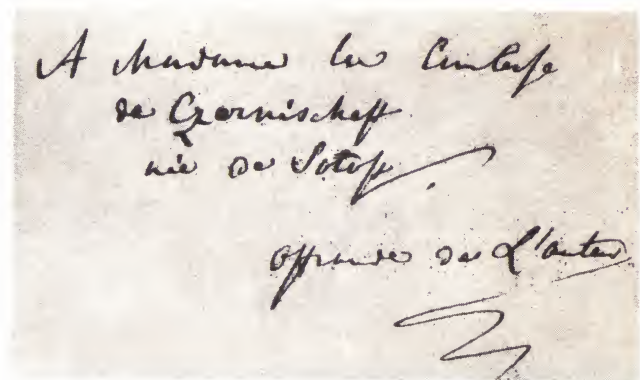 A Madame la Comtesse
de Czernischeff
née de Zotoff.
offrande de L'auteur